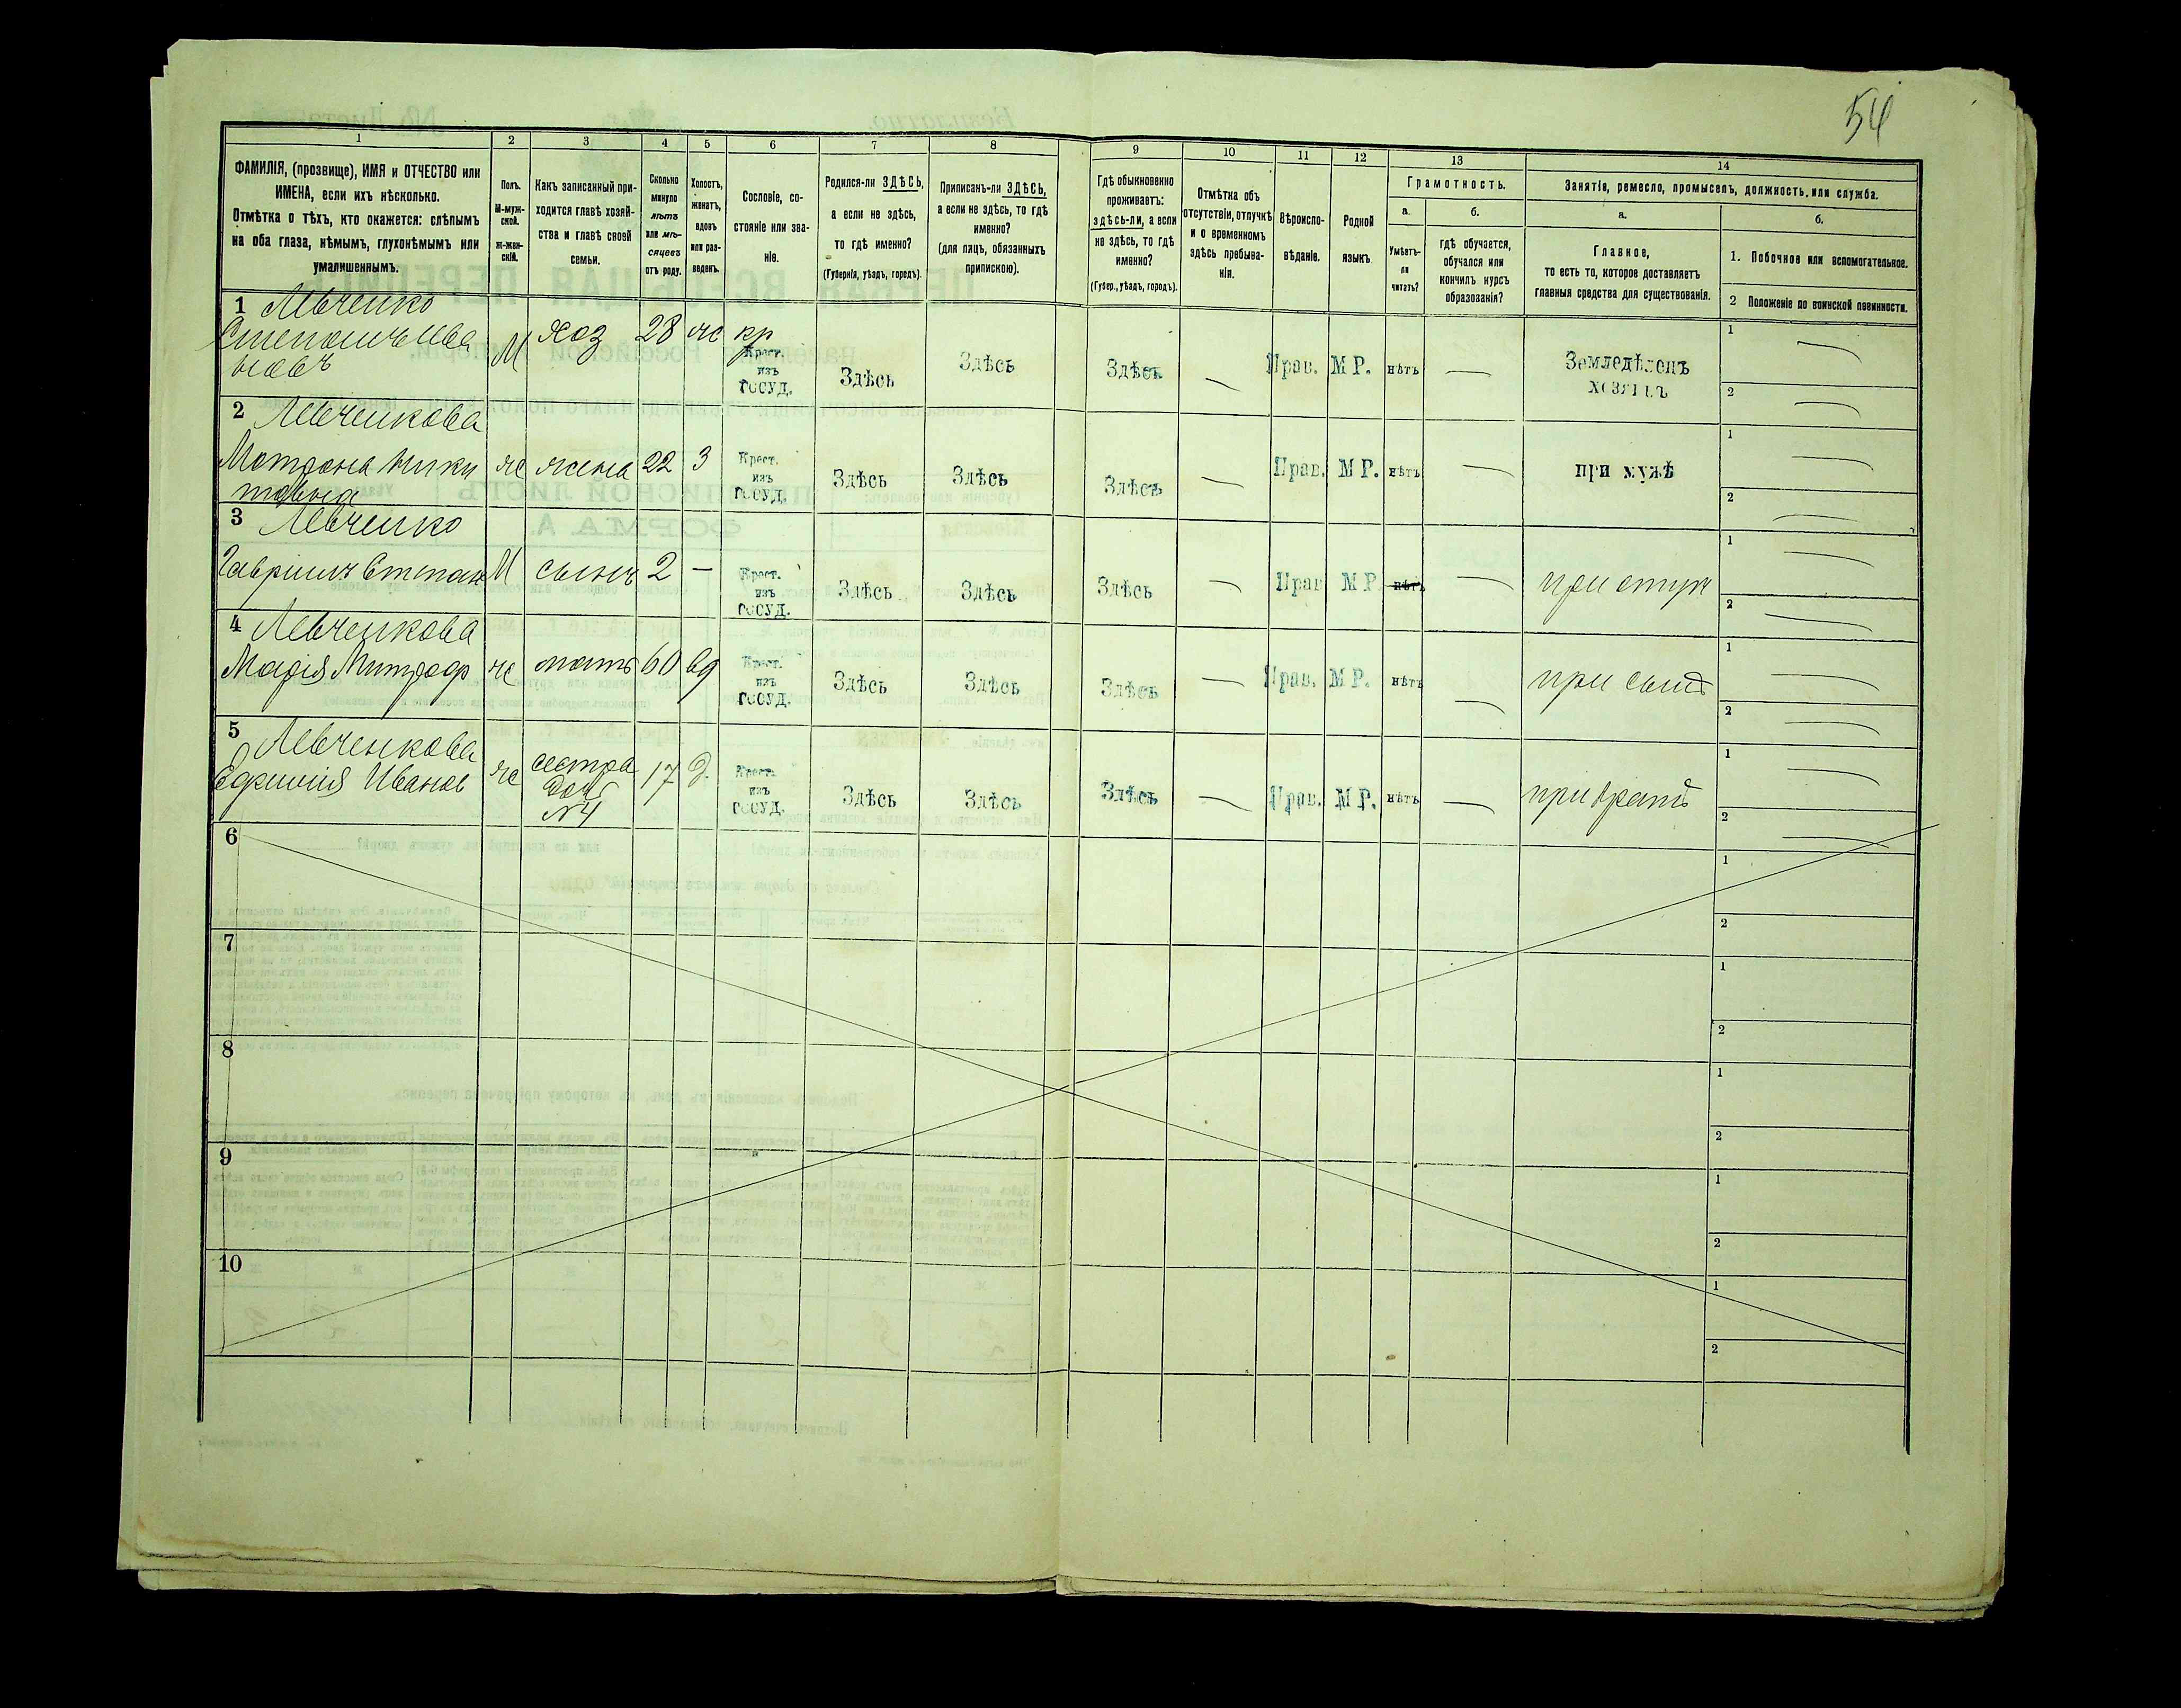 54
1 2 3 4 5 6 7 8 9 10 11 12 13 14
ФАМИЛІЯ, (прозвище), ИМЯ и ОТЧЕСТВО или
ИМЕНА, если ихъ нѣсколько.
Отмѣтка о тѣхъ, кто окажется: слѣпымъ
на оба глаза, нѣмымъ, глухонѣмымъ или
умалишеннымъ.
Полъ.
М-муж-
ской.
ж-жен-
скій.
Какъ записанный при-
ходится главѣ хозяй-
ства и главѣ своей
семьи.
Сколько
минуло
лѣтъ
или мѣ-
сяцевъ
отъ роду.
Холостъ,
женатъ,
вдовъ
или раз-
веденъ.
Сословіе, со-
стояніе или зва-
ніе.
Родился-ли ЗДѢСЬ,
а если не здѣсь,
то гдѣ именно?
(Губернія, уѣздъ, городъ).
Приписанъ-ли ЗДѢСЬ,
а если не здѣсь, то гдѣ
именно?
(для лицъ, обязанныхъ
припискою).
Гдѣ обыкновенно
проживаетъ:
здѣсь-ли, а если
не здѣсь, то гдѣ
именно?
(Губер., уѣздъ, городъ).
Отмѣтка объ
отсутствіи, отлучкѣ
и о временномъ
здѣсь пребыва-
ніи.
Вѣроиспо-
вѣданіе.
Родной
языкъ.
Грамотность.
а.
Умѣетъ-
ли
читать?
б.
гдѣ обучается,
обучался или
кончилъ курсъ
образованія?
Занятіе, ремесло, промыселъ, должность или служба.
а.
Главное,
то есть то, которое доставляетъ
главныя средства для существованія.
б.
1. Побочное или вспомогательное.
2 Положеніе по воинской повинности.
1 Левченко
Степанъ Ива
новъ
М хоз 28 ж кр
Крест.
изъ
госуд.
Здѣсь Здѣсь Здѣсь — Прав. М Р. нѣтъ —
Земледѣлецъ
хозяинъ
1 —
2 —
2 Левченкова
Мотрона Ники
товна
ж жена 22 З
Крест.
изъ
госуд.
Здѣсь Здѣсь Здѣсь — Прав. М Р. нѣтъ — при мужѣ
1 —
2 —
3 Левченко
Гавріилъ Степан
М сынъ 2 —
Крест.
изъ
госуд.
Здѣсь Здѣсь Здѣсь — Прав М Р. нѣтъ — при отцѣ
1 —
2 —
4 Левченкова
Марія Митроф
ж мать 60 вд
Крест.
изъ
госуд.
Здѣсь Здѣсь Здѣсь — Прав. М Р. нѣтъ — при сынѣ
1 —
2 —
5 Левченкова
Ефимія Иванов
ж сестра
дочь
№4
17 д.
Крест.
изъ
госуд.
Здѣсь Здѣсь Здѣсь — Прав. М Р. нѣтъ — при братѣ
1 —
2 —
6
1
2
7
1
2
8
1
2
9
1
2
10
1
2